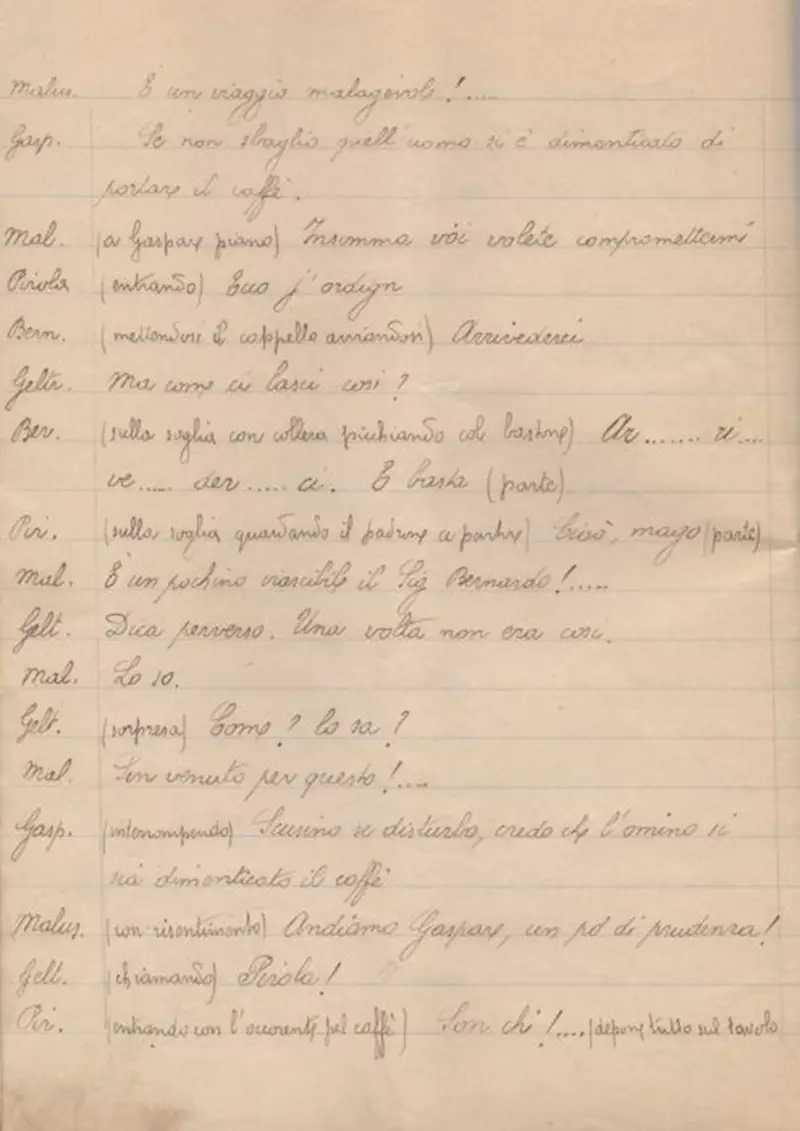 Malus. È un viaggio malagevole!.....
Gasp. Se non sbaglio quell'uomo si è dimenticato di
portare il caffè.
Mal. (a Gaspare piano) Insomma voi volete compromettermi
Pirola (entrando) Ecco j'ordign
Bern. (mettendosi il cappello avviandosi) Arrivederci
Geltr. Ma come ci lasci così?
Ber. (sulla soglia con collera picchiando col bastone) Ar....... ri....
ve..... der..... ci. E basta (parte)
Pir. (sulla soglia guardando il padrone a partire) Ciaò, mago (parte)
Mal. È un pochino irascibile il Sig Bernardo!.....
Gelt. Dica perverso. Una volta non era così.
Mal. Lo so.
Gelt. (sorpresa) Come? lo sa?
Mal. Son venuto per questo!....
Gasp. (interrompendo) Scusino se disturbo, credo che l'omino si
sia dimenticato il caffè
Malus. (con risentimento) Andiamo Gaspare, un pò di prudenza!
Gelt. (chiamando) Pirola!
Pir. (entrando con l'occorente pel caffè) Son chi!....(depone tutto sul tavolo